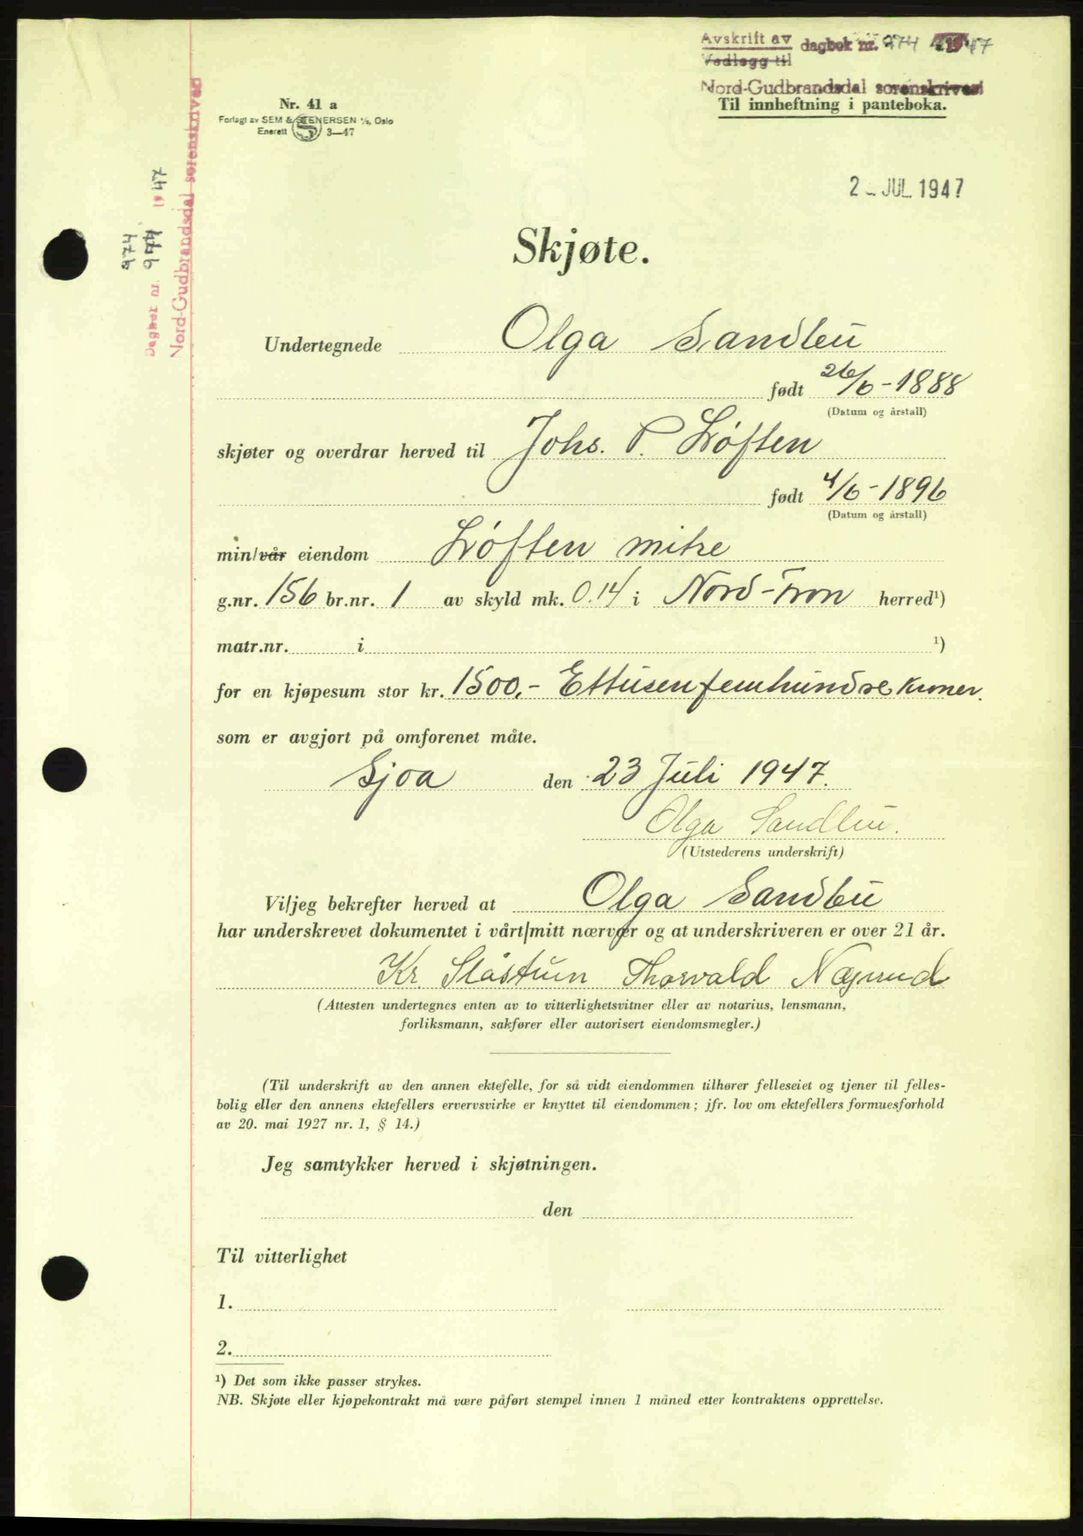 Avskrift av
Vedlegg til
dagbok nr. 974 1947
Nord-Gudbrandsdal sorenskriveri
Til innheftning i panteboka.
Nr. 41 a
Forlagt av SEM & STENERSEN A/S, Oslo
Enerett S 3—47
Dagbok nr. 974 1947
974
Nord-Gudbrandsdal sorenskriveri
2 - JUL 1947
Skjøte.
Undertegnede Olga Sandbu
født 26/6 - 1888
(Datum og årstall)
skjøter og overdrar herved til Johs. P. Løften
født 4/6 - 1896
(Datum og årstall)
min/vår eiendom Løften mitre
g.nr. 156 br.nr. 1 av skyld mk. 0.14 i Nord-Fron herred¹)
matr.nr. i ¹)
for en kjøpesum stor kr. 1500,- Ettusenfemhundre kroner.
som er avgjort på omforenet måte.
Sjoa den 23 Juli 1947.
Olga Sandbu.
(Utstederens underskrift)
Vi/jeg bekrefter herved at Olga Sandbu
har underskrevet dokumentet i vårt/mitt nærvær og at underskriveren er over 21 år.
Kr Slåstuen Thorvald
(Attesten undertegnes enten av to vitterlighetsvitner eller av notarius, lensmann,
forliksmann, sakfører eller autorisert eiendomsmegler.)
(Til underskrift av den annen ektefelle, for så vidt eiendommen tilhører felleseiet og tjener til felles-
bolig eller den annens ektefellers ervervsvirke er knyttet til eiendommen; jfr. lov om ektefellers formuesforhold
av 20. mai 1927 nr. 1, § 14.)
Jeg samtykker herved i skjøtningen.
den
Til vitterlighet
1.
2.
¹) Det som ikke passer strykes.
NB. Skjøte eller kjøpekontrakt må være påført stempel innen 1 måned etter kontraktens opprettelse.